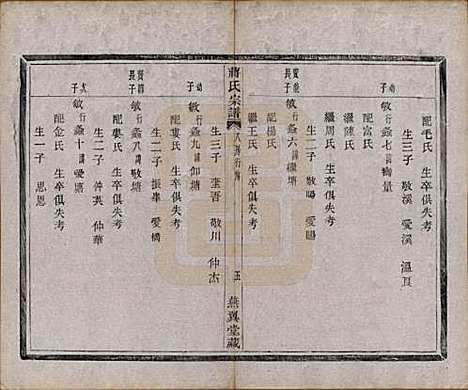 配毛氏 生卒俱失考
生三子 敬溪 愛溪 溫夏
幼子 敏行鑫七諱
配富氏
繼陳氏
繼周氏 生卒俱失考
生二子 敬暘 愛暘
長子 敏行鑫六諱
配楊氏
繼王氏 生卒俱失考
生三子 奎吾 敬川 仲杰
蔣氏宗譜
五
燕翼堂藏
幼子 敏行鑫九諱仰塘
配婁氏 生卒俱失考
生二子 振華 愛橋
長子 敏行鑫八諱
配婁氏 生卒俱失考
生二子 仲英 仲華
次子 敏行鑫十諱愛塘
配金氏 生卒俱失考
生一子 思恩